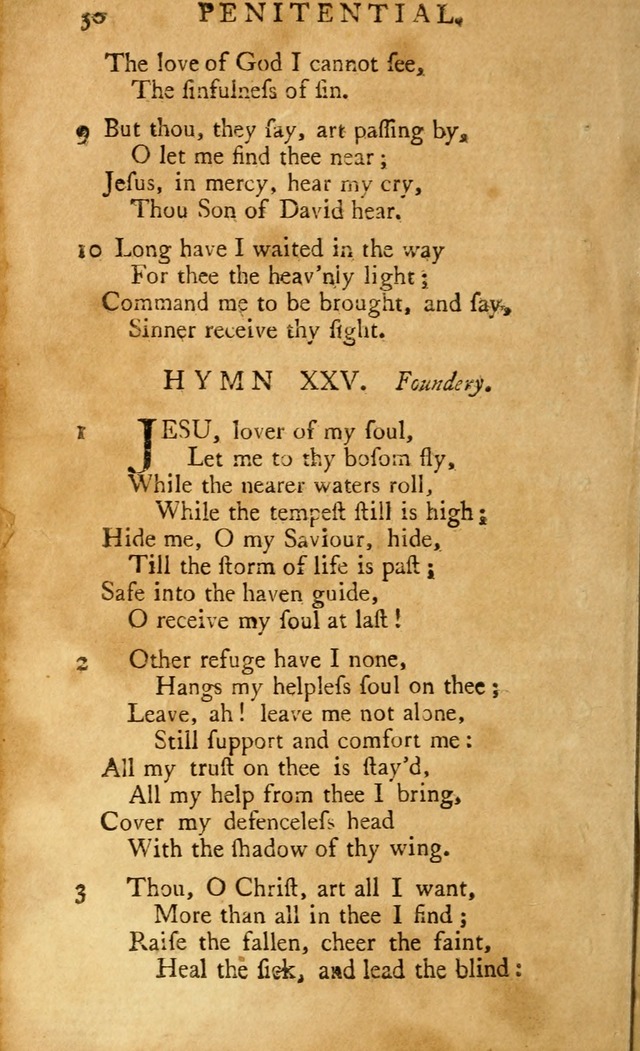 30 PENITENTIAL.
The love of God I cannot ſee,
The ſinfulneſs of ſin.
9 But thou, they ſay, art paſſing by,
O let me find thee near;
Jeſus, in mercy, hear my cry,
Thou Son of David hear.
10 Long have I waited in the way
For thee the heav'nly light;
Command me to be brought, and ſay,
Sinner receive thy ſight.
HYMN XXV. Foundery.
1 JESU, lover of my ſoul,
Let me to thy boſom fly,
While the nearer waters roll,
While the tempeſt ſtill is high;
Hide me, O my Saviour, hide,
Till the ſtorm of life is paſt;
Safe into the haven guide,
O receive my ſoul at laſt!
2 Other refuge have I none,
Hangs my helpleſs ſoul on thee;
Leave, ah! leave me not alone,
Still ſupport and comfort me:
All my truſt on thee is ſtay'd,
All my help from thee I bring,
Cover my defenceleſs head
With the ſhadow of thy wing.
3 Thou, O Chriſt, art all I want,
More than all in thee I find;
Raiſe the fallen, cheer the faint,
Heal the ſick, and lead the blind: